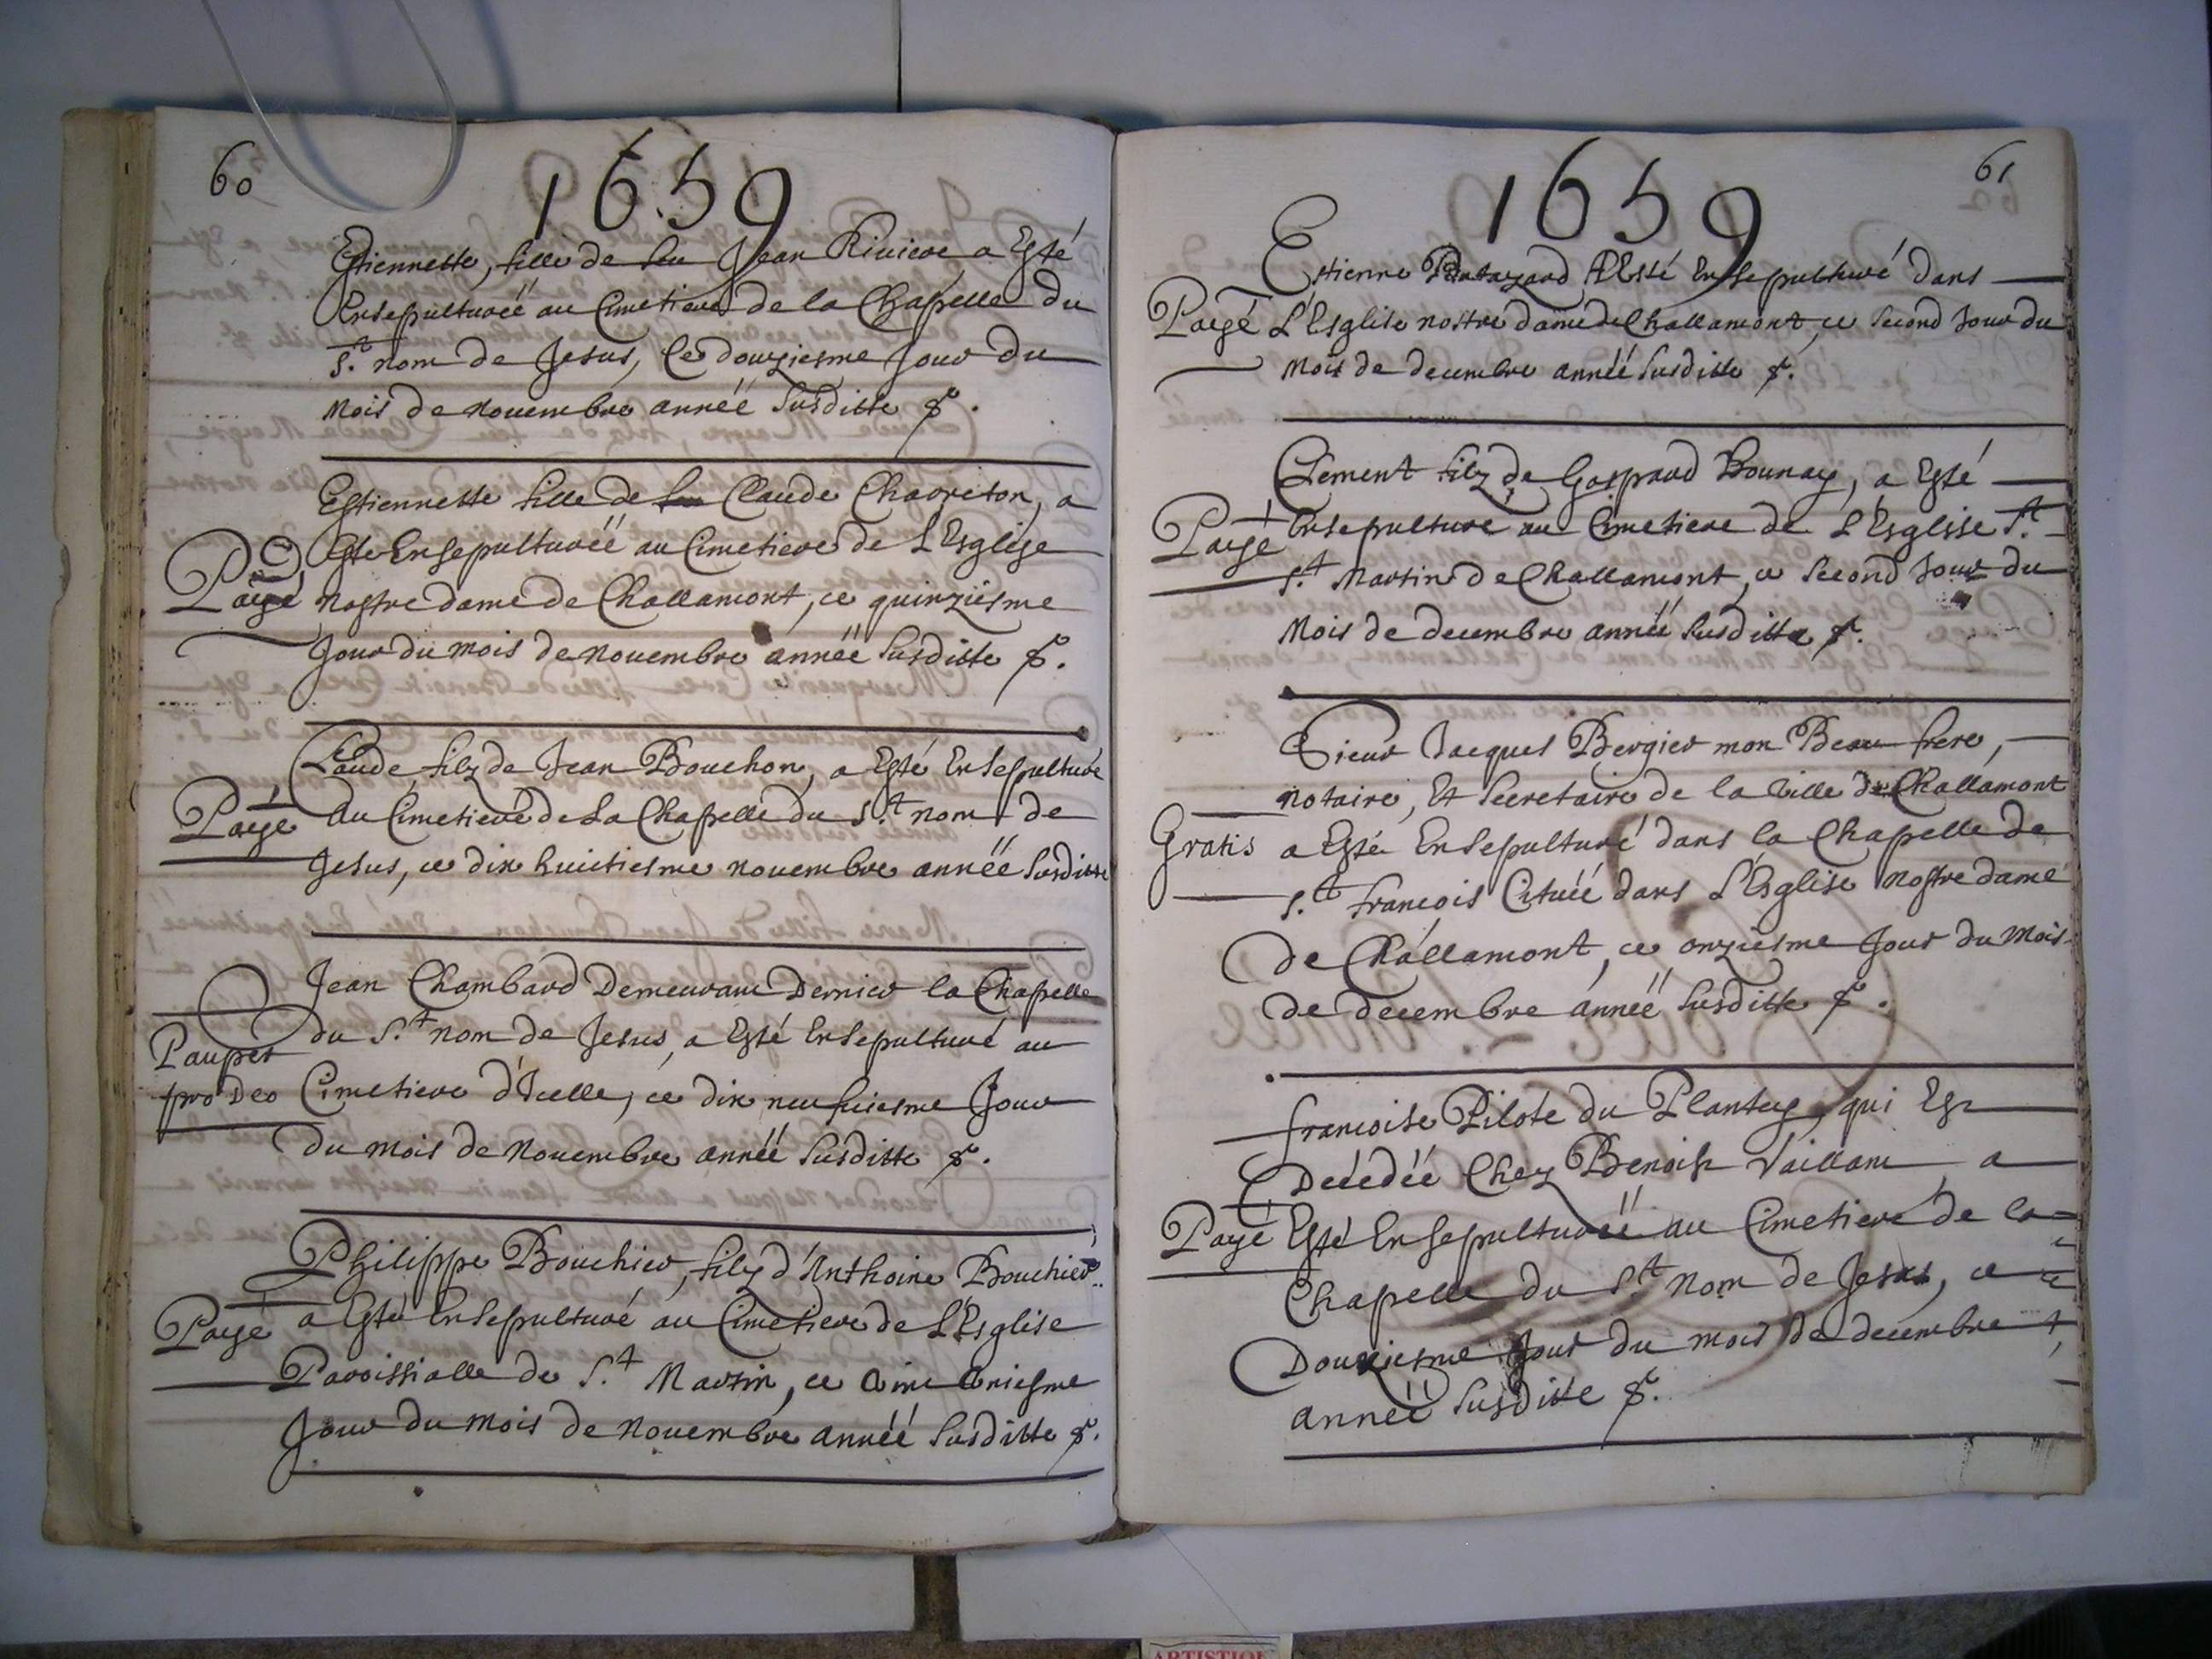 60
1659
Estiennette, fille de feu Jean Riviere a Esté
Ensepulturéé au Cimetiere de la Chapelle du
S.t nom de Jesus, Ce douziesme Jour du
Mois de Nouembre annéé Susditte &.
Estiennette fille de feu Claude Chavreton, a
Esté Ensepulturéé au Cimetiere de L'Esglise
Payé nostre dame de Challamont, ce quinziesme
Jour du mois de nouembre annéé Susditte &.
Claude, filz de Jean Bouchon, a Esté Ensepulturé
Payé Au Cimetiere de La Chapelle du S.t nom de
Jesus, ce dix huictiesme nouembre annéé Susditte
Jean Chambard Demeurant Dernier la Chapelle
Pauper du S.t nom de Jesus, a Esté Ensepulturé au
pro Deo Cimetiere d'Icelle, ce dix neufuiesme Jour
du mois de Nouembre annéé Susditte &.
Philippe Bouchier, filz d'Anthoine Bouchier
Payé a Esté Ensepulturé au Cimetiere de L'Esglise
Paroissialle de S.t Martin, ce
Jour du mois de Nouembre annéé Susditte &.
61
1659
Estienne A Esté Ensepulturé dans
Payé L'Esglise nostre dame de Challamont, ce Second Jour du
Mois de decembre annéé Susditte &.
Clement filz de Gaspard Bounay, a Esté
Payé Ensepulturé au Cimetiere de L'Esglise S.t
S.t Martin de Challamont, ce Second Jour du
Mois de decembre annéé Susditte &.
Sieur Jacques Bergier mon Beau frere,
notaire, Et Secretaire de la Ville de Challamont
Gratis a Esté Ensepulturé dans la Chapelle de
S.t François Cituéé dans L'Esglise nostre dame
de Challamont, ce onziesme Jour du Mois
de decembre annéé Susditte &.
françoise Pilote du Plantay, qui Est
Decédéé Chez Benoist Vaillant a
Payé Esté Ensepulturéé au Cimetiere de la
Chapelle du S.t Nom de Jesus, ce
Douziesme Jour du mois de decembre
annéé Susditte &.